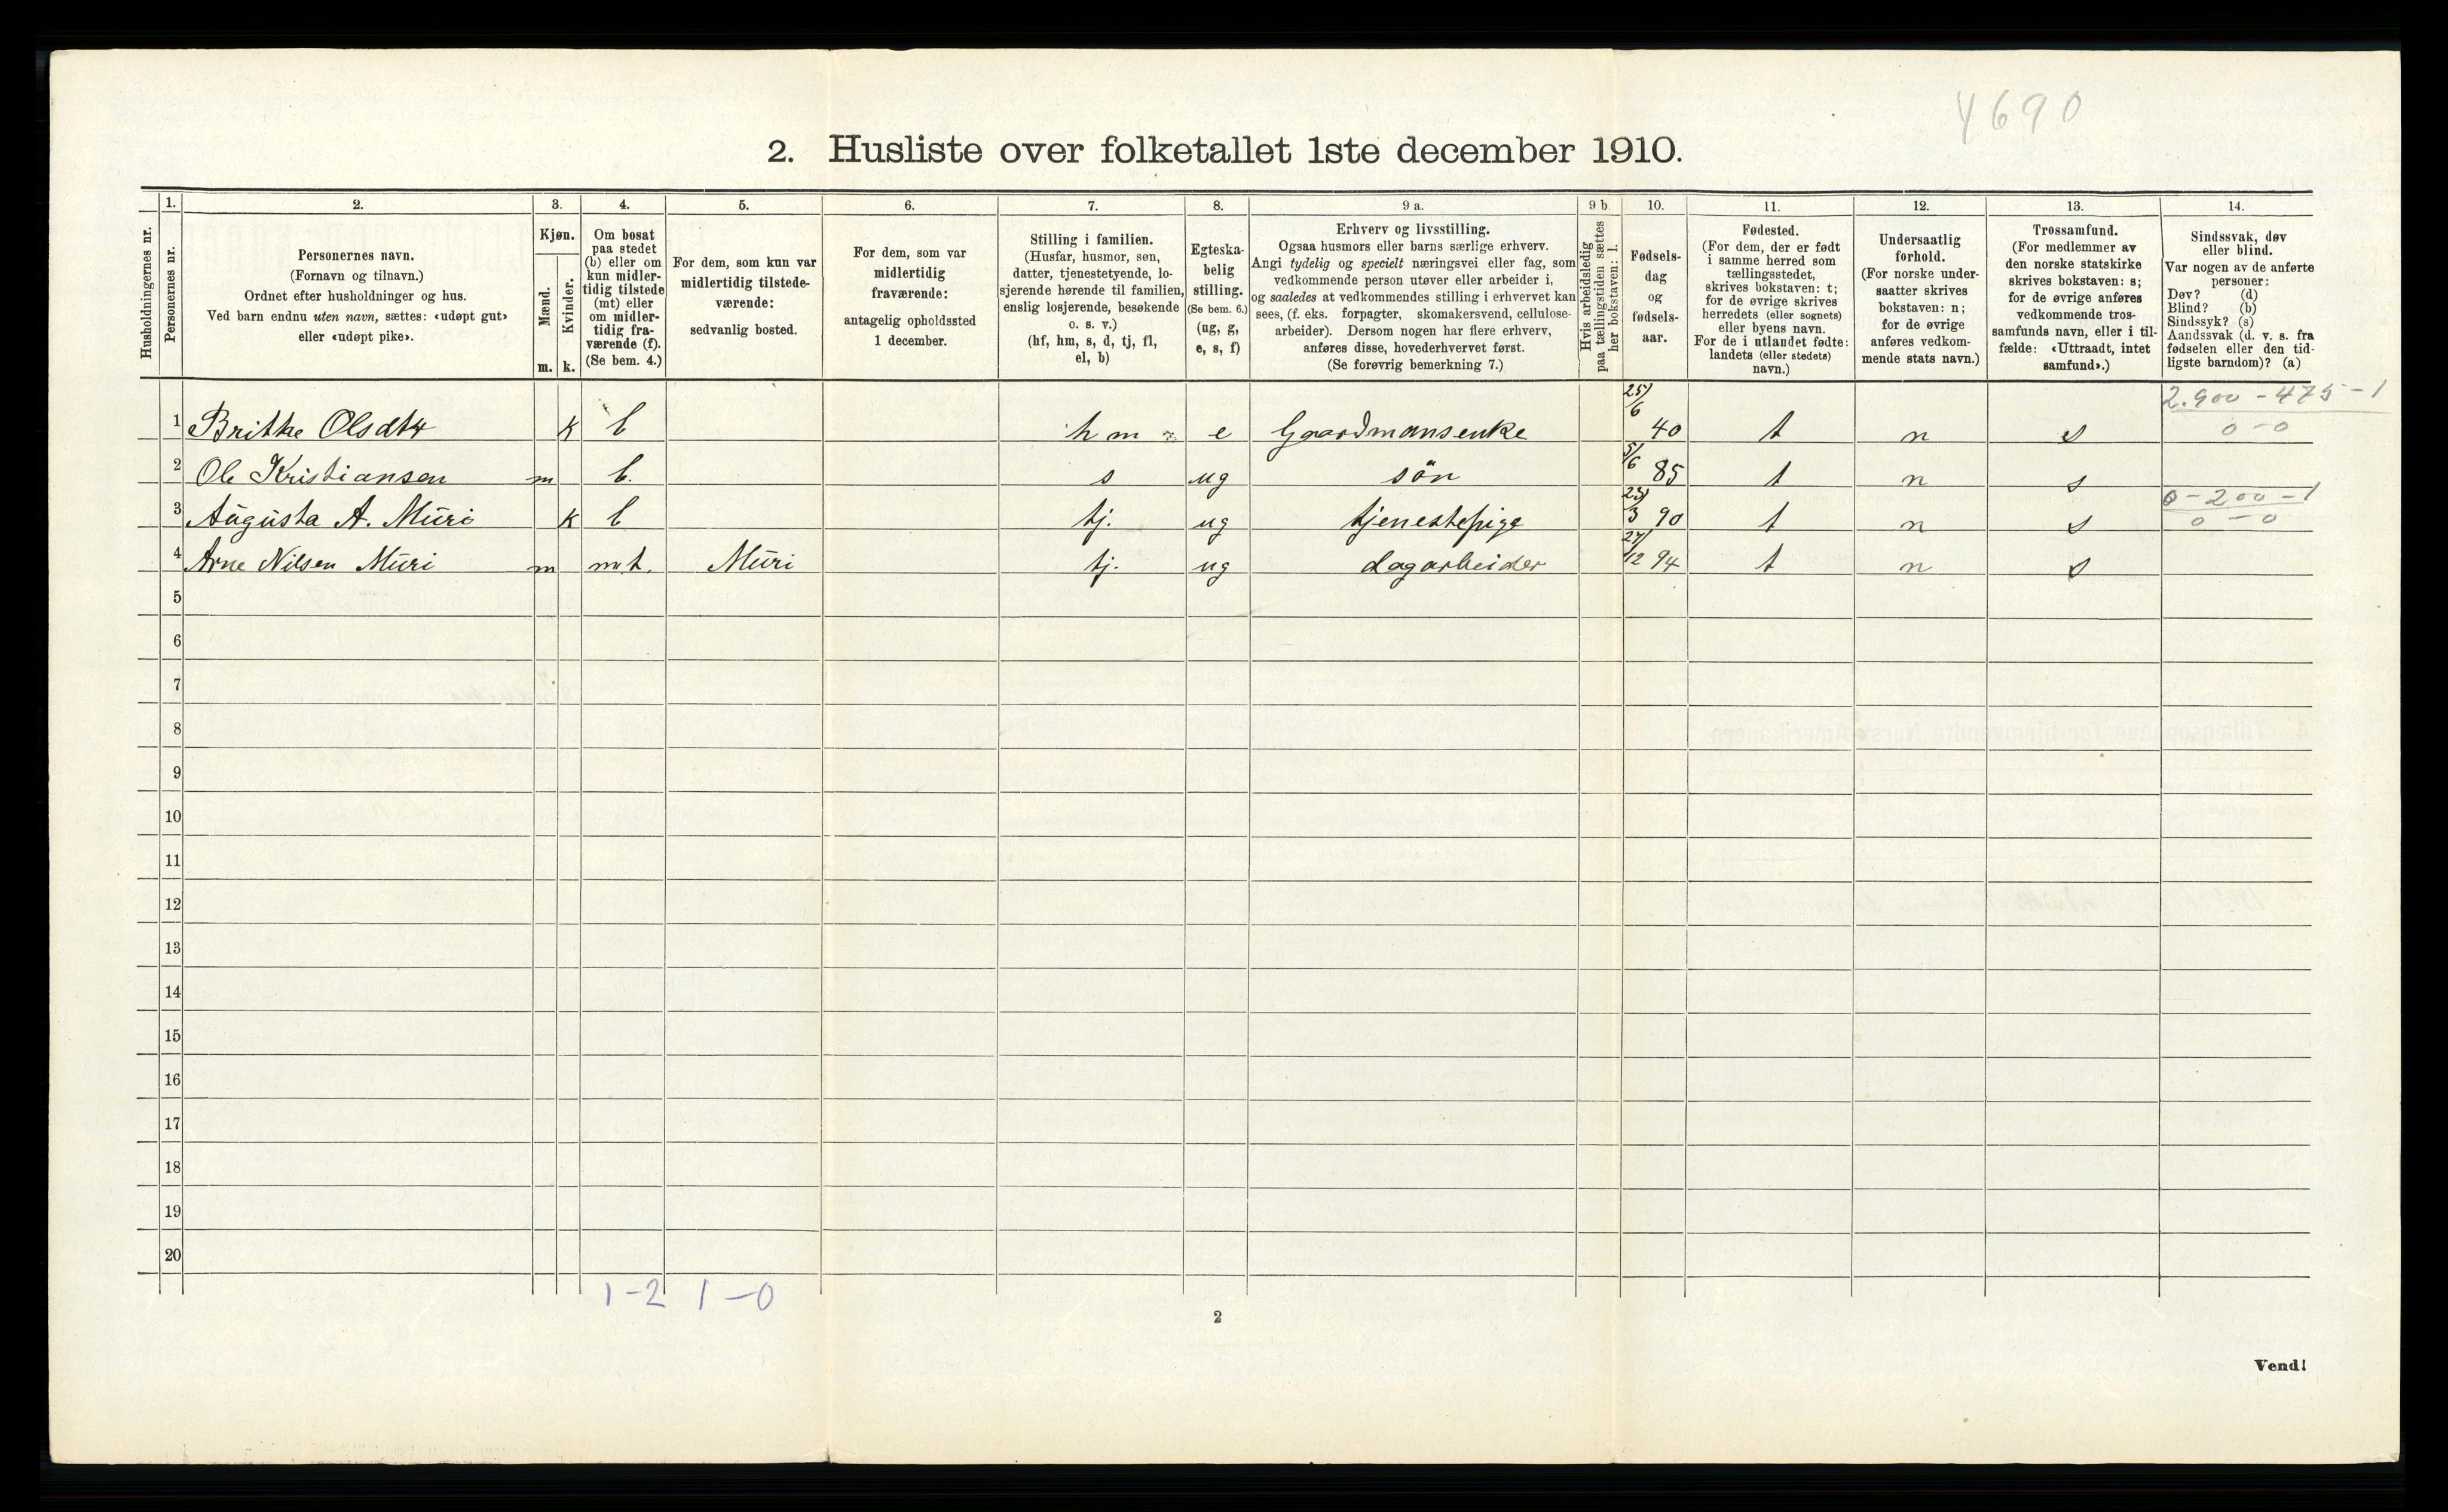 4690
2. Husliste over folketallet 1ste december 1910.
1. 2. 3. 4. 5. 6. 7. 8. 9 a. 9 b. 10. 11. 12. 13. 14.
Husholdningernes nr.
Personernes nr.
Personernes navn.
(Fornavn og tilnavn.)
Ordnet efter husholdninger og hus.
Ved barn endnu uten navn, sættes: «udøpt gut»
eller «udøpt pike».
Kjøn.
Mænd.
Kvinder.
m. k.
Om bosat
paa stedet
(b) eller om
kun midler-
tidig tilstede
(mt) eller
om midler-
tidig fra-
værende (f).
(Se bem. 4.)
For dem, som kun var
midlertidig tilstede-
værende:
sedvanlig bosted.
For dem, som var
midlertidig
fraværende:
antagelig opholdssted
1 december.
Stilling i familien.
(Husfar, husmor, søn,
datter, tjenestetyende, lo-
sjerende hørende til familien,
enslig losjerende, besøkende
o. s. v.)
(hf, hm, s, d, tj, fl,
el, b)
Egteska-
belig
stilling.
(Se bem. 6.)
(ug, g,
e, s, f)
Erhverv og livsstilling.
Ogsaa husmors eller barns særlige erhverv.
Angi tydelig og specielt næringsvei eller fag, som
vedkommende person utøver eller arbeider i,
og saaledes at vedkommendes stilling i erhvervet kan
sees, (f. eks. forpagter, skomakersvend, cellulose-
arbeider). Dersom nogen har flere erhverv,
anføres disse, hovederhvervet først.
(Se forøvrig bemerkning 7.)
Hvis arbeidsledig
paa tællingstiden sættes
her bokstaven: l.
Fødsels-
dag
og
fødsels-
aar.
Fødested.
(For dem, der er født
i samme herred som
tællingsstedet,
skrives bokstaven: t;
for de øvrige skrives
herredets (eller sognets)
eller byens navn.
For de i utlandet fødte:
landets (eller stedets)
navn.)
Undersaatlig
forhold.
(For norske under-
saatter skrives
bokstaven: n;
for de øvrige
anføres vedkom-
mende stats navn.)
Trossamfund.
(For medlemmer av
den norske statskirke
skrives bokstaven: s;
for de øvrige anføres
vedkommende tros-
samfunds navn, eller i til-
fælde: «Uttraadt, intet
samfund».)
Sindssvak, døv
eller blind.
Var nogen av de anførte
personer:
Døv? (d)
Blind? (b)
Sindssyk? (s)
Aandssvak (d. v. s. fra
fødselen eller den tid-
ligste barndom)? (a)
2.900 - 475 - 1
1 Brithe Olsdtr k b hm e Gaardmansenke 25/6 40 t n s 0 - 0
2 Ole Kristiansen m b. s ug sön 5/6 85 t n s
0 - 200 - 1
3 Augusta A. Muri k b tj. ug tjenestepige 23/3 90 t n s 0 - 0
4 Arne Nilsen Muri m mt. Muri tj. ug dagarbeider 27/12 94 t n s
5
6
7
8
9
10
11
12
13
14
15
16
17
18
19
20
1 - 2 1 - 0
2
Vend!